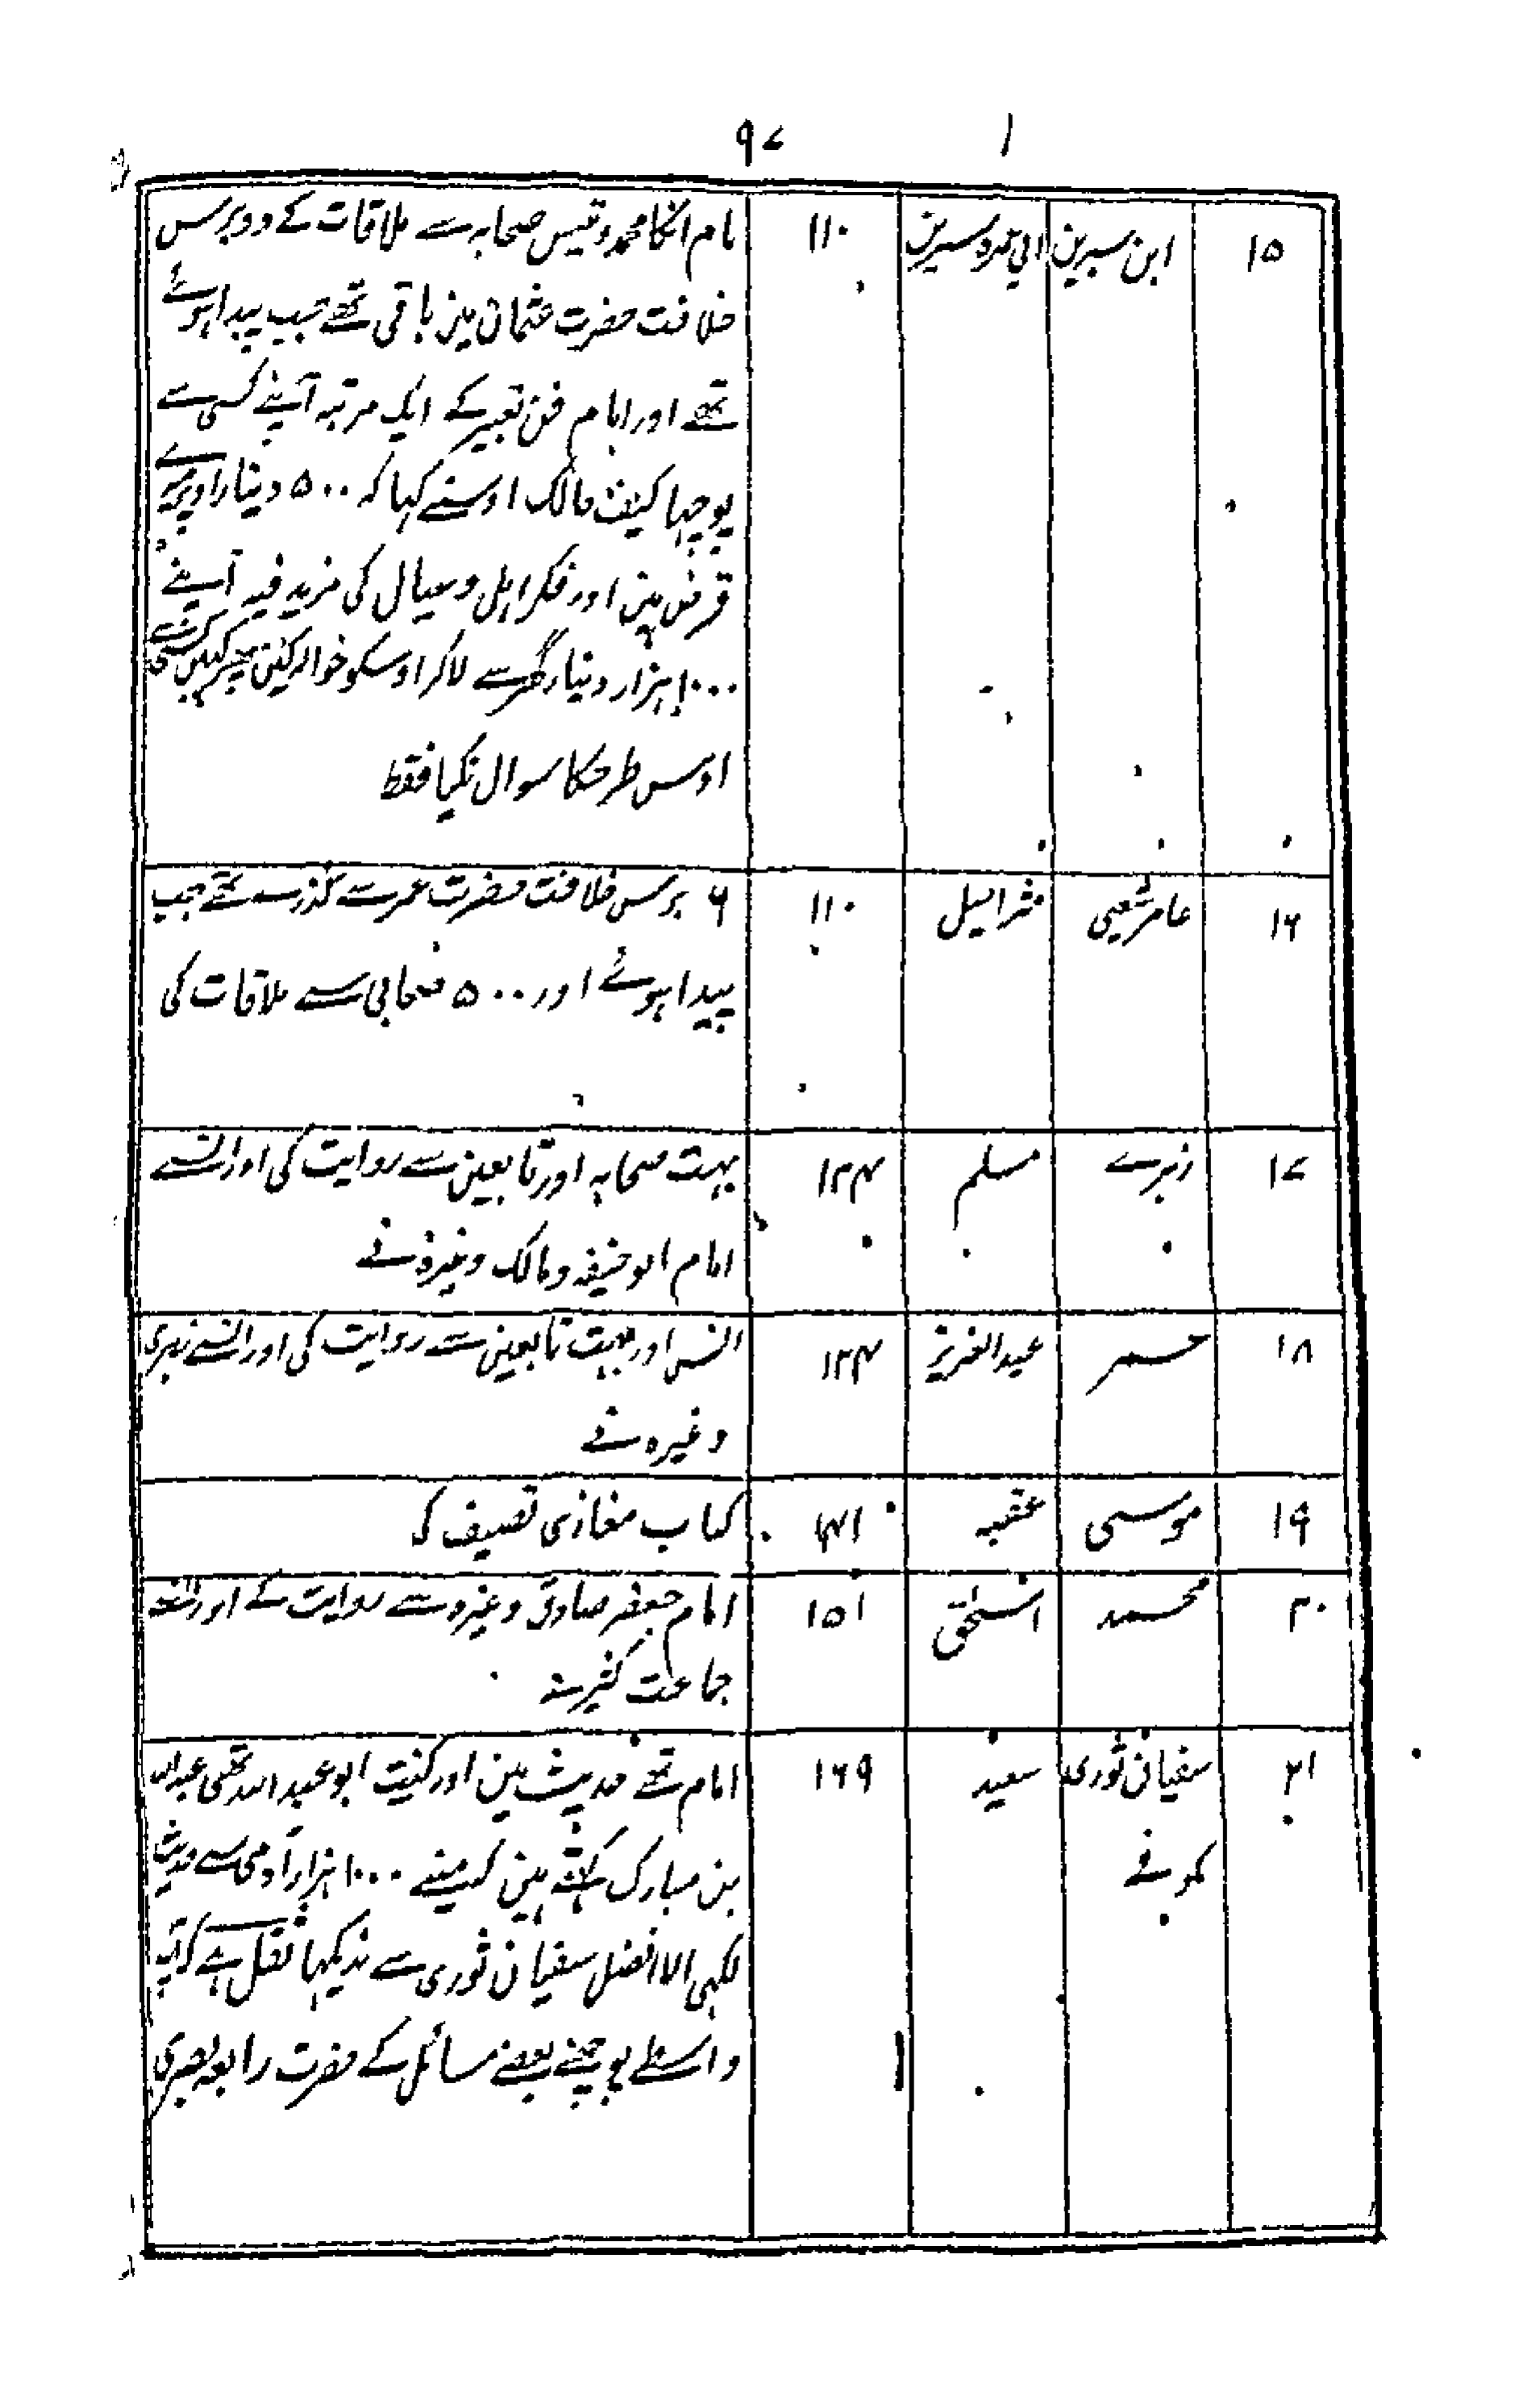 ۹۷
۱۵ ابن سیرین ابی عمرہ سیرین ۱۱۰ نام انکا محمد و تیس صحابہ سے ملاقات کے دو برس
خلافت حضرت عثمان مین باقی تھے جب پیدا ہوئے
تھے اور امام فن تعبیر کے ایک مرتبہ آپنے کسی سے
پوچھا کیف حالک اوسنے کہا کہ ۵۰۰ دینار اوپر میرے
قرض ہین اور فکر اہل و عیال کی مزید فیہ آپنے
۱۰۰۰ ہزار دینار گھر سے لاکر اوسکو حوالہ کئن پھر کہین کسی سے
اوس طرحکا سوال نکیا فقط
۱۶ عامر شعبی شراحیل ۱۱۰ ۶ برس خلافت حضرت عمر سے گذرے تھے جب
پیدا ہوئے اور ۵۰۰ صحابی سے ملاقات کی
۱۷ زہرے مسلم ۱۲۴ بہت صحابہ اور تابعین سے روایت کی اور انسے
امام ابو حنیفہ و مالک وغیرہ نے
۱۸ عمر عبدالعزیز ۱۲۴ انس اور بہت تابعین سے روایت کی اور انسے زہری
وغیرہ نے
۱۹ موسی عقبہ ۱۴۱ کتاب مغازی تصنیف کی
۲۰ محمد اسحٰق ۱۵۱ امام جعفر صادق وغیرہ سے روایت کے اور انسے
جماعت کثیر نے
۲۱ سفیان ثوری سعید ۱۶۹ امام تھے حدیث مین اور کنیت ابو عبد اللہ تھی عبداللہ
کوفے بن مبارک کہتے ہین کہ مینے ۱۰۰۰ ہزار آدمی سے حدیث
لکہی الا افضل سفیان ثوری سے ندیکہا نقل ہے کہ آپ
واسطے پوچھنے بعضے مسائل کے حضرت رابعہ بصری